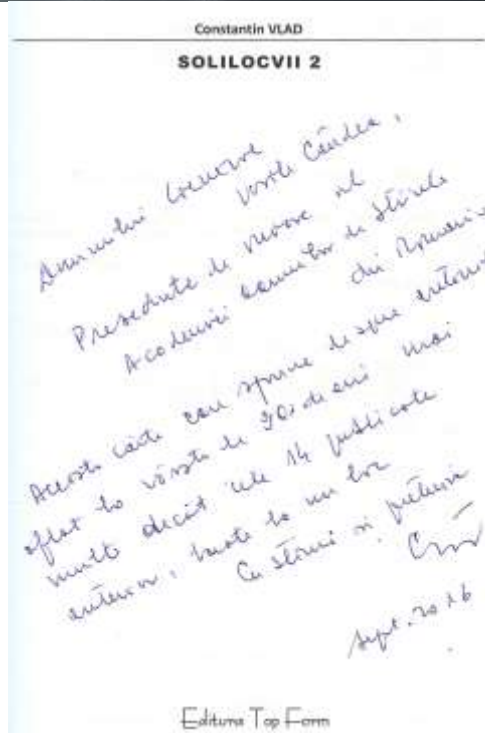 Constantin VLAD
SOLILOCVII 2
Domnului General
Vasile Cândea,
Președinte de onoare al
Academiei Oamenilor de Știință
din România
Această carte care spune despre autorul
aflat la vârsta de 90 de ani mai
mult decât cele 14 publicate
anterior, luate la un loc
Cu stimă și prețuire
Sept. 2016
Editura Top Form